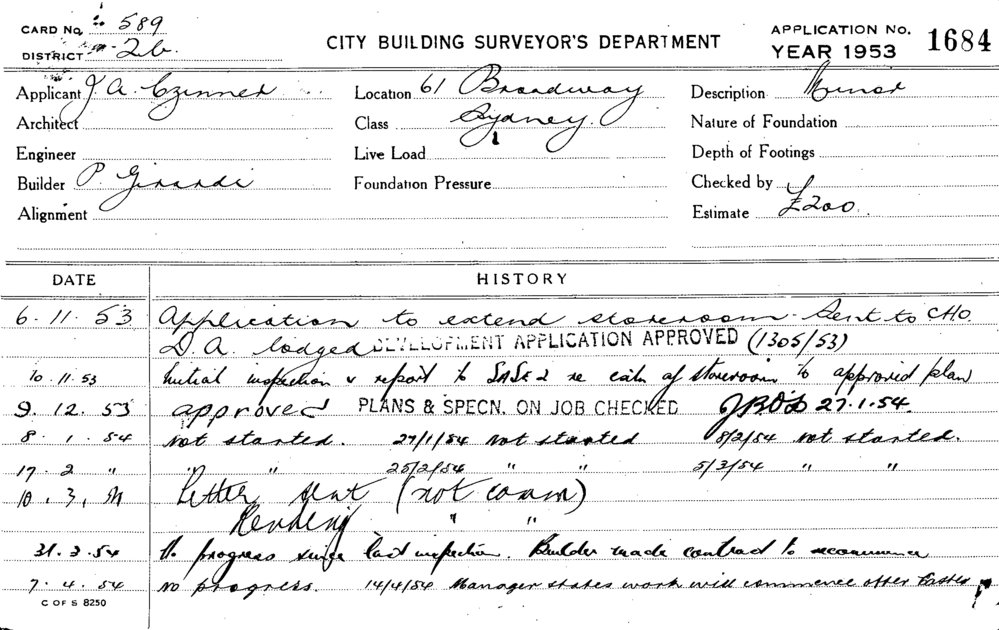 CARD No. 589
DISTRICT 2b.
CITY BUILDING SURVEYOR'S DEPARTMENT
APPLICATION No.
YEAR 1953
1684
Applicant J. A. Czinner
Location 61 Broadway
Description Minor
Architect
Class Sydney.
Nature of Foundation
Engineer
Live Load
Depth of Footings
Builder P. Girardi
Foundation Pressure
Checked by
Alignment
Estimate £200.
DATE
HISTORY
6.11.53 Application to extend storeroom. Sent to CHO.
D.A. lodged DEVELOPMENT APPLICATION APPROVED (1305/53)
10.11.53 Initial inspection & report to re of storeroom to approved plan
9.12.53 approved PLANS & SPECN. ON JOB CHECKED 27.1.54.
8.1.54 not started. 27/1/54 not started 8/2/54 not started.
17.2 " " " 25/2/54 " " 5/3/54 " "
10.3. Letter sent (not comm)
" "
31.3.54 No progress since last inspection. Builder made contract to recommence
7.4.54 no progress. 14/4/54 Manager states work will commence after Easter
C OF S 8250